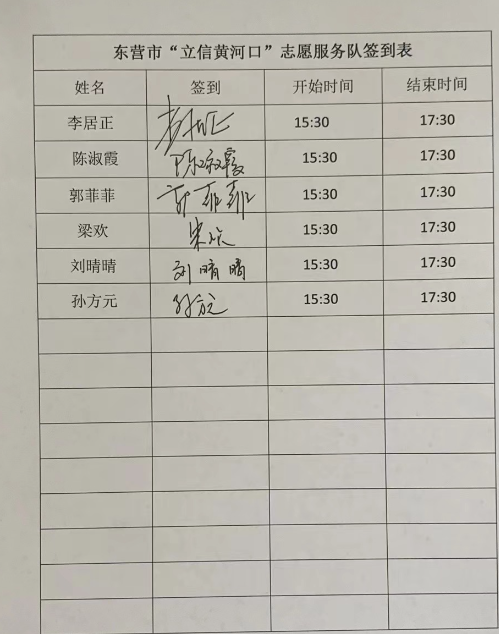 东营市“立信黄河口”志愿服务队签到表
姓名 签到 开始时间 结束时间
李居正 李居正 15:30 17:30
陈淑霞 陈淑霞 15:30 17:30
郭菲菲 郭菲菲 15:30 17:30
梁欢 梁欢 15:30 17:30
刘晴晴 刘晴晴 15:30 17:30
孙方元 孙方元 15:30 17:30